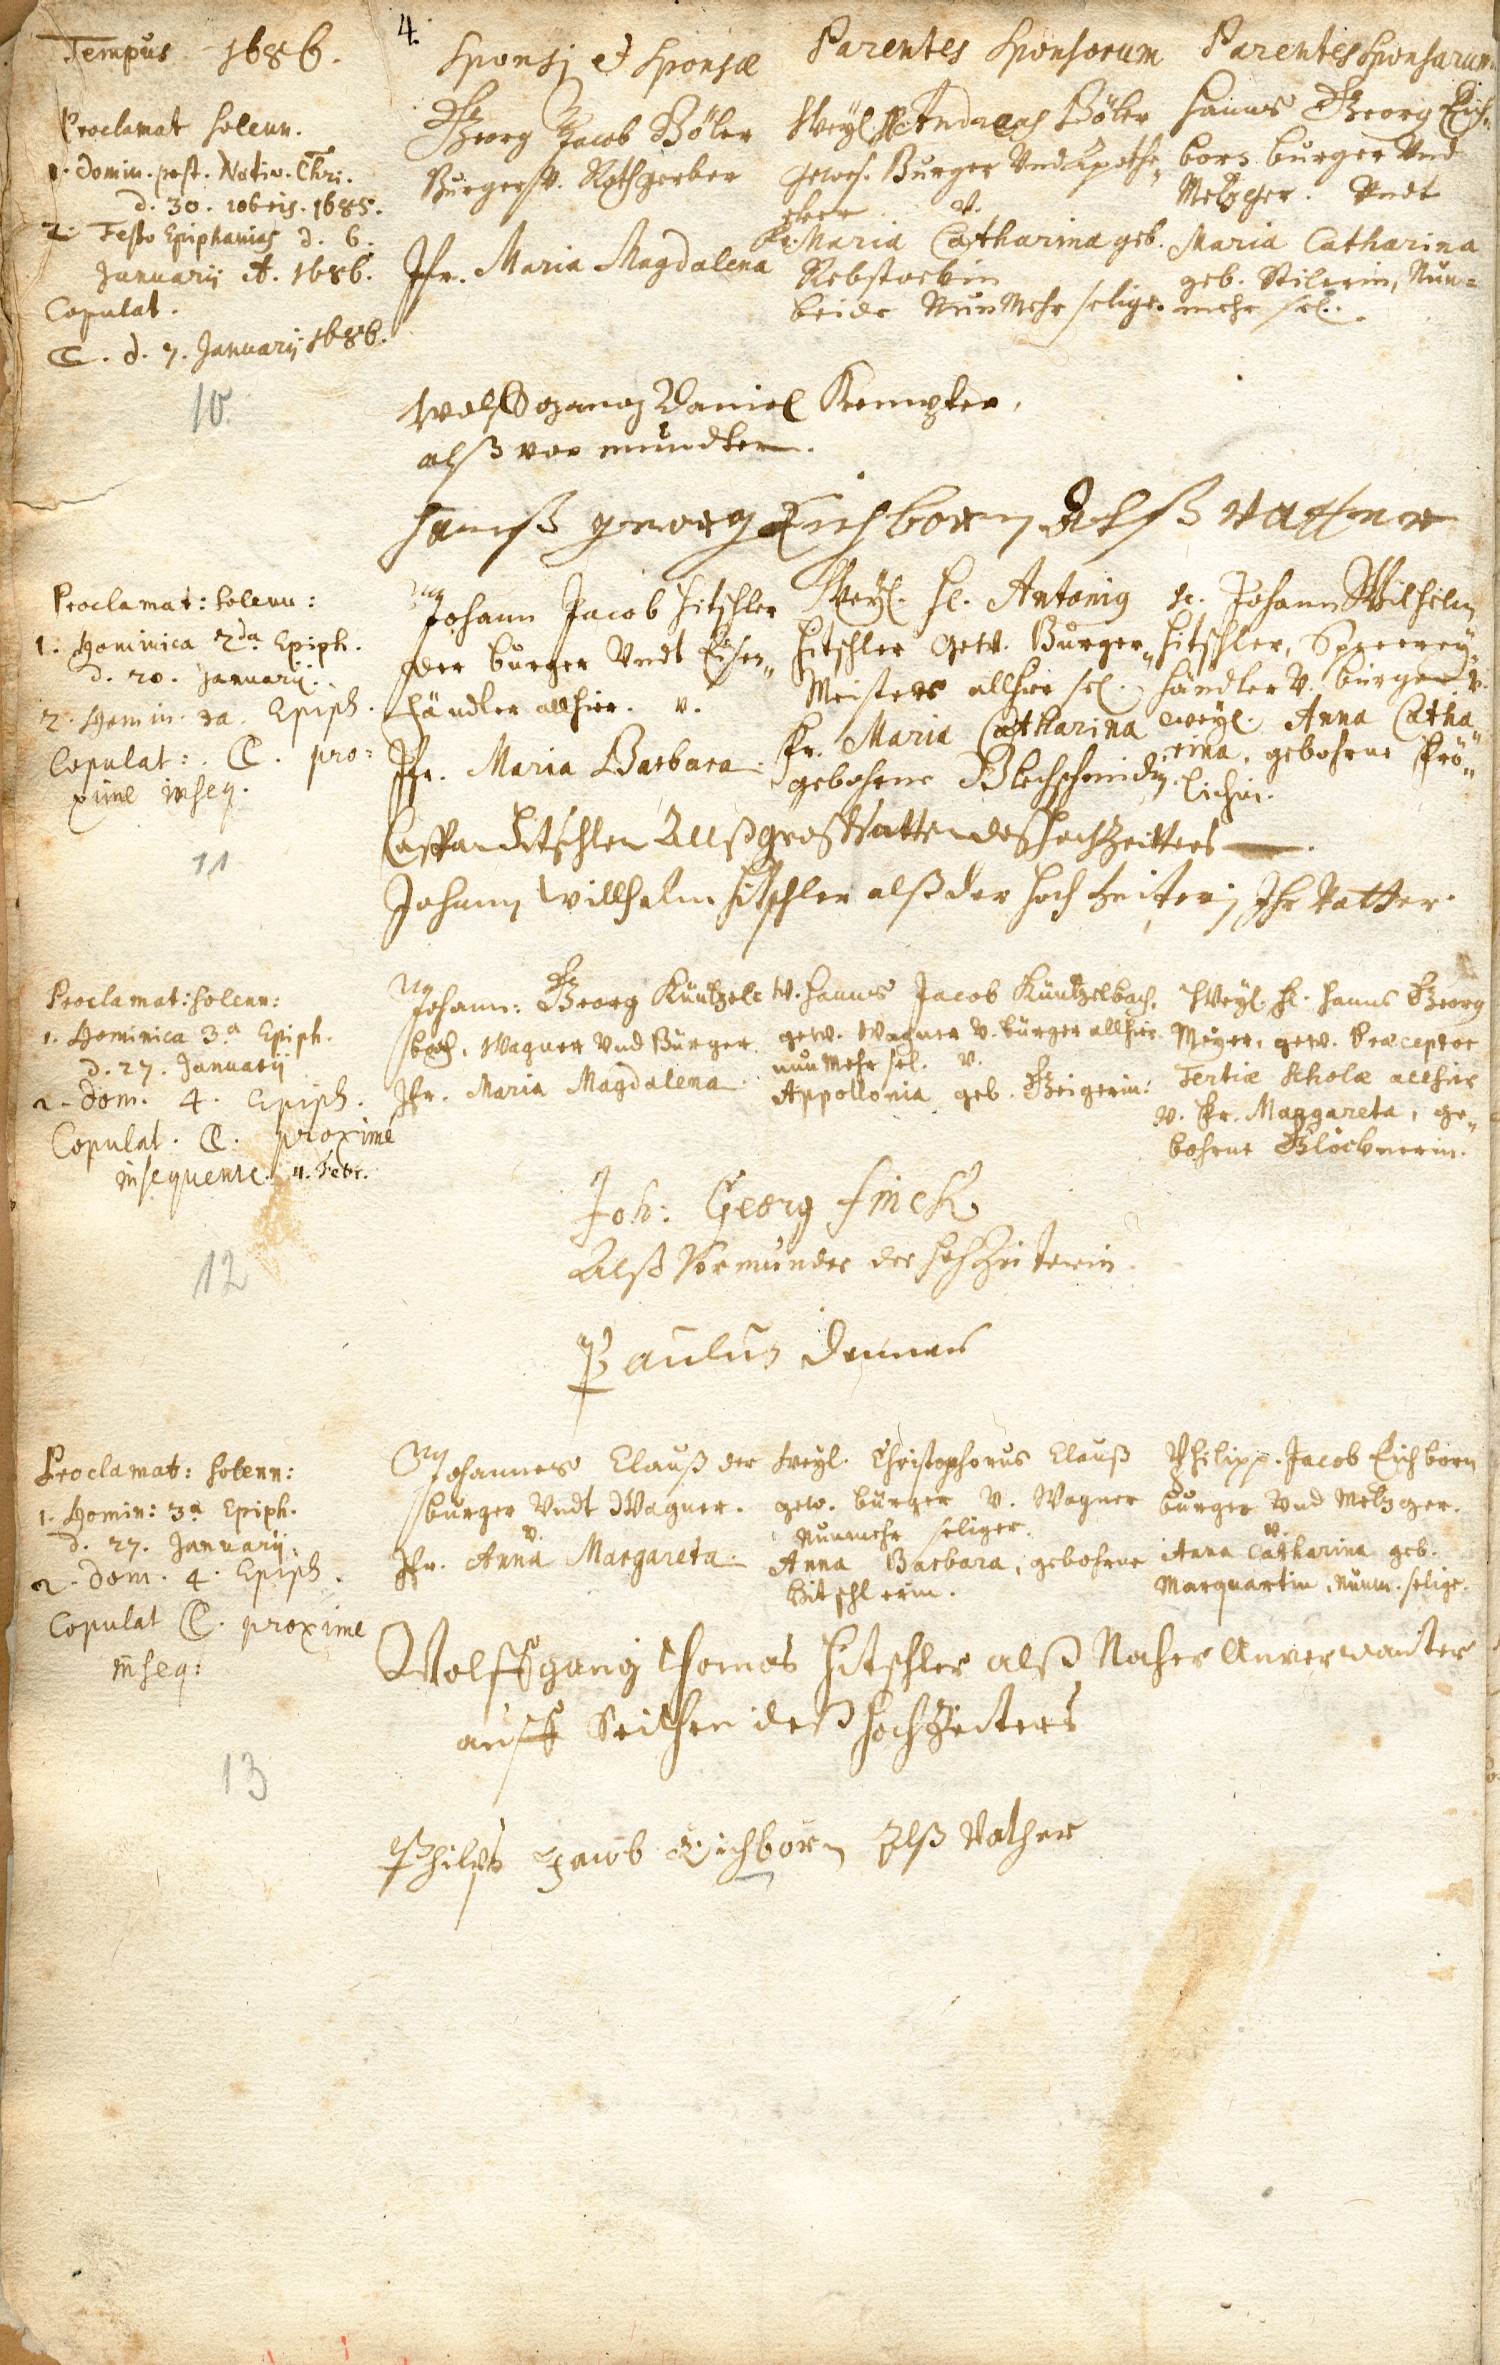 4.
Tempus 1686.
Sponsi et Sponsæ
Parentes Sponsorum
Parentes Sponsarum
Proclamat solenn.
1. Domin. post. Nativ. Chri.
d. 30. 10bris. 1685.
2. Festo Epiphanias d. 6.
Januarij A. 1686.
Copulat.
C. d. 7. Januarij 1686.
10.
Georg Jacob Böler
Burger v. Rothgerber
Jfr. Maria Magdalena
Weyl. H. Andreas Böler
gewes. Burger Vnd Apothe„
cker v.
Fr. Maria Catharina geb.
Rebstockin
beide NunMehr selige.
Hanns Georg Eich„
born burger Vnd
Metzger. Vndt
Maria Catharina
geb. Stilerin, Nun=
mehr sel.
Wolffgang Daniel Kempter,
alß vor mündter.
Hanß georg Eichborn Alß Vatter
Proclamat: solenn:
1. Dominica 2da Epiph.
d. 20. Januarij.
2. Domin. 3a. Epiph.
Copulat: C. pro=
xime inseq.
11
Johann Jacob Hitschler
der burger Vndt Eisen„
händler allhier. v.
Jfr. Maria Barbara.
Weyl. H. Antonij
Hitschler gew. Burger„
Meisters allhier sel.
Fr. Maria Catharina
gebohrne Blechschmidin
H. Johann Wilhelm
Hitschler, Specerey„
händler v. burger v.
weyl. Anna Catha„
rina, gebohrne Frö„
lichin.
Caspar Hitschler Allß groß Vatter deß Hochzeitters
Johann Willhelm Hitschler alß der Hoch zeiterin Ihr Vatter.
Proclamat: solenn:
1. Dominica 3a Epiph.
d. 27. Januarij
2. Dom. 4. Epiph.
Copulat. C. proxime
insequente. 4. Febr.
12
Johann: Georg Küntzel
bach, Wagner Vnd Burger
Jfr. Maria Magdalena.
W. Hanns Jacob Küntzelbach.
gew. Wagner v. burger allhier
nunMehr sel. v.
Appollonia geb. Geigerin.
Weyl. H. Hanns Georg
Meyer, gew. Præceptor
Tertiæ Scholæ allhier
v. Fr. Margareta, ge„
bohrne Glöcknerin.
Joh: Georg Finck
Alß Vormunder der Hochzeiterin.
Paulus
Proclamat: solenn:
1. Domin: 3a Epiph.
d. 27. Januarij.
2. Dom. 4. Epiph.
Copulat C. proxime
inseq:
13
Johannes Clauß der
burger Vndt Wagner.
v.
Jfr. Anna Margareta.
Weyl. Christophorus Clauß
gew. burger v. Wagner
Nunmehr seliger.
Anna Barbara, gebohrne
Hitschlerin.
Philipp. Jacob Eichborn
burger Vnd Metzger.
v.
Anna Catharina geb.
Marquartin, Nunm. selige.
Wolffgang Thomas Hitschler alß Naher Anverwanter
auff Seithen deß Hochzeiters
Philips Jacob Eichborn Alß Vather